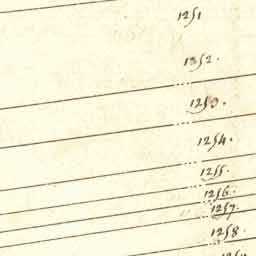 1251
1252.
1253.
1254.
1255.
1256.
1257.
1258.